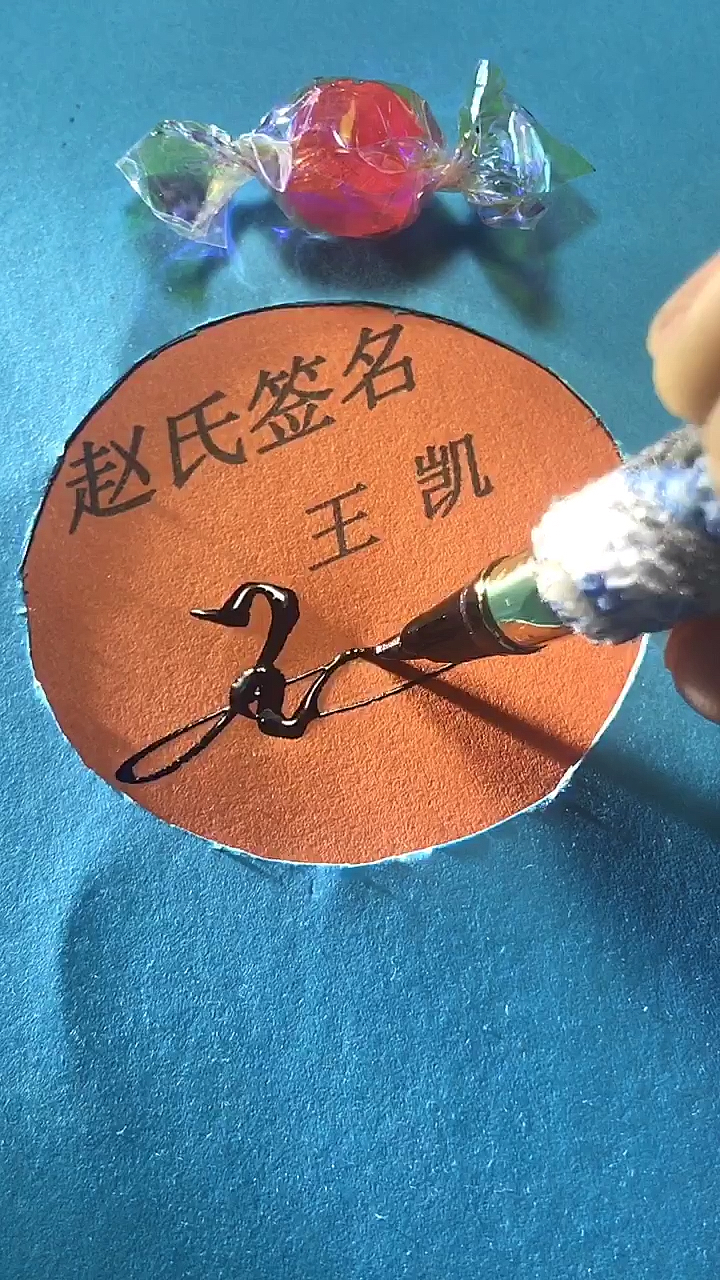 赵氏签名
王凯